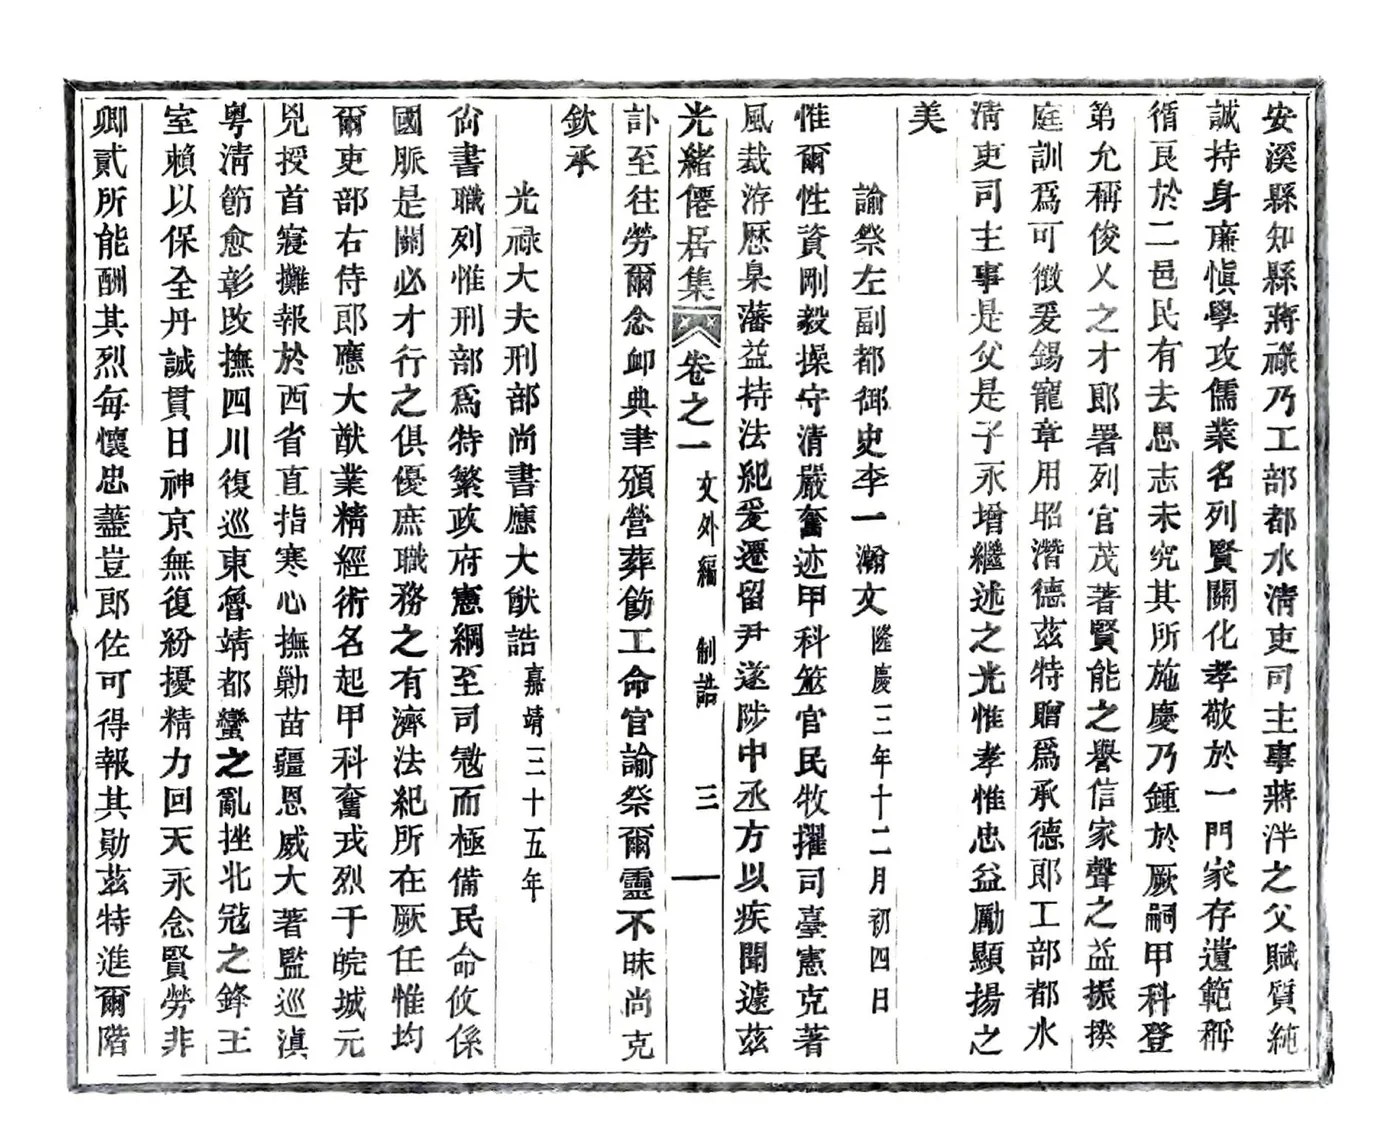 安溪縣知縣蔣祿乃工部都水清吏司主事蔣泮之父賦質純
誠持身廉慎學攻儒業名列賢關化孝敬於一門家存遺範稱
循良於二邑民有去思志未究其所施慶乃鍾於厥嗣甲科登
第允稱俊乂之才郎署列官茂著賢能之譽信家聲之益振揆
庭訓爲可徵爰錫寵章用昭潛德茲特贈爲承德郎工部都水
清吏司主事是父是子永增繼述之光惟孝惟忠益勵顯揚之
美
諭祭左副都御史李一瀚文隆慶三年十二月初四日
惟爾性資剛毅操守清嚴奮迹甲科筮官民牧擢司臺憲克著
風裁游歷臬藩益持法紀爰遷留尹遂陟中丞方以疾聞遽茲
光緒僊居集 卷之一 文外編 制誥 三
訃至往勞爾念卹典聿頒營葬飭工命官諭祭爾靈不昧尚克
欽承
光祿大夫刑部尚書應大猷誥嘉靖三十五年
尙書職列惟刑部爲特繁政府憲綱至司寇而極備民命攸係
國脈是關必才行之俱優庶職務之有濟法紀所在厥任惟均
爾吏部右侍郎應大猷業精經術名起甲科奮戎烈于皖城元
兇授首寢攤報於西省直指寒心撫勦苗疆恩威大著監巡滇
粵清節愈彰改撫四川復巡東魯靖都蠻之亂挫北寇之鋒王
室賴以保全丹誠貫日神京無復紛擾精力回天永念賢勞非
卿貳所能酬其烈每懷忠藎豈郎佐可得報其勛茲特進爾階